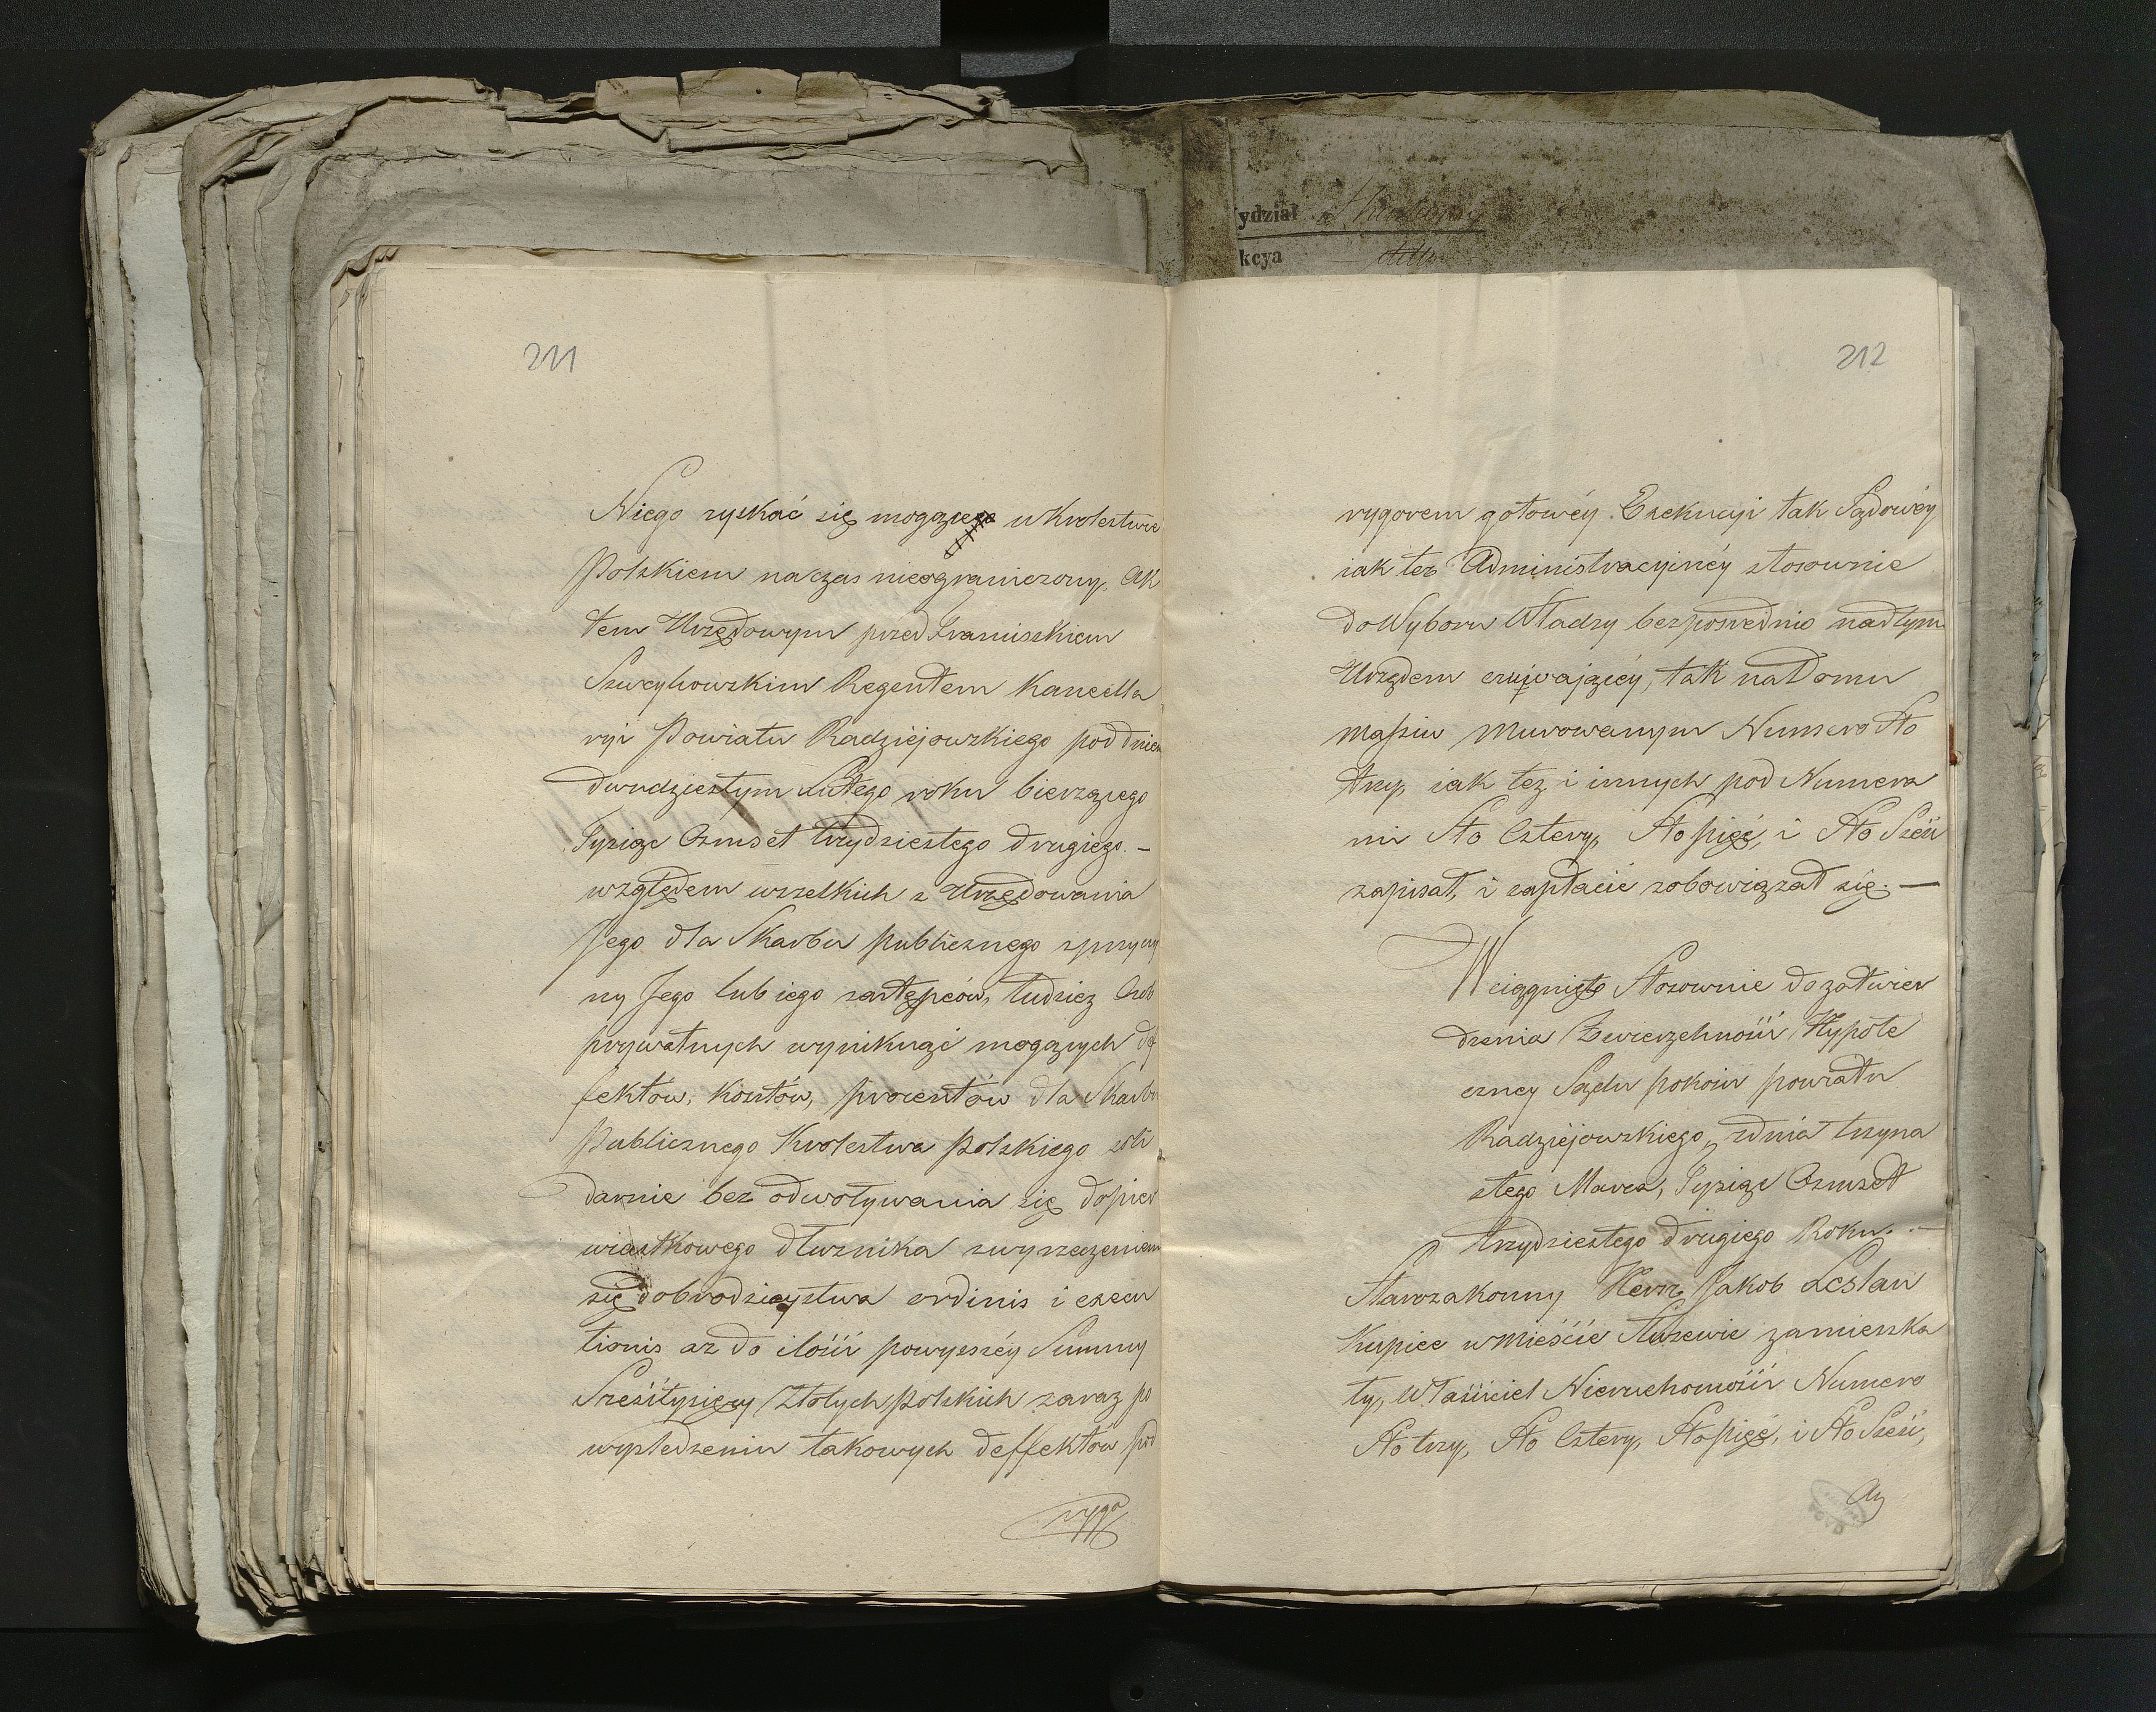 ydział Skarbowy
kcya
211
Niego zyskać się mogące w Krolestwie
Polskiem na czas nieograniczony, Ak
tem Urzędowym przed Franciszkiem
Szwcyhowskim Regentem Kancella
ryi Powiatu Radziejowskiego pod dniem
dwudziestym Lutego roku bierzącego
Tysiąc Osmset trzydziestego drugiego. –
względem wszelkich z Urzędowania
Jego dla Skarbu publicznego z przyczy
ny Jego lub iego zastępców, tudzież Osób
prywatnych wyniknąć mogących de
fektów, kosztów, procentów dla Skarbu
Publicznego Krolestwa Polskiego soli
darnie bez odwoływania się do pier
wiastkowego dłużnika z wyrzeczeniem
się dobrodzieystwa ordinis i excu
tionis aż do ilości powyższéy Summy
Sześćtysięcy Złotych Polskich zaraz po
wyśledzeniu takowych deffektów pod
rygo
212
rygorem gotowéy Exekucyi tak Sądowéy
iak też Administracyinéy stosownie
do Wyboru Władzy bezpośrednio nad tym
Urzędem czuwaiącéy, tak na Domu
massiw murowanym Numero Sto
trzy, iak też i innych pod Numera
mi Sto Cztery, Sto pięć, i Sto Sześć
zapisał, i zapłacić zobowiązał się. —
Wciągnięto Stosownie do zatwier
dzenia Zwierzchności Hypote
czney Sądu pokoiu powiatu
Radziejowskiego, z dnia trzyna
stego Marca, Tysiąc Osmset
trzydziestego drugiego Roku. —
Starozakonny Herz Jakob Leslau
Kupiec w Mieście Służewie zamieszka
ły, Właściciel Nieruchomości Numero
Sto trzy, Sto Cztery, Sto pięć, i Sto Sześć,